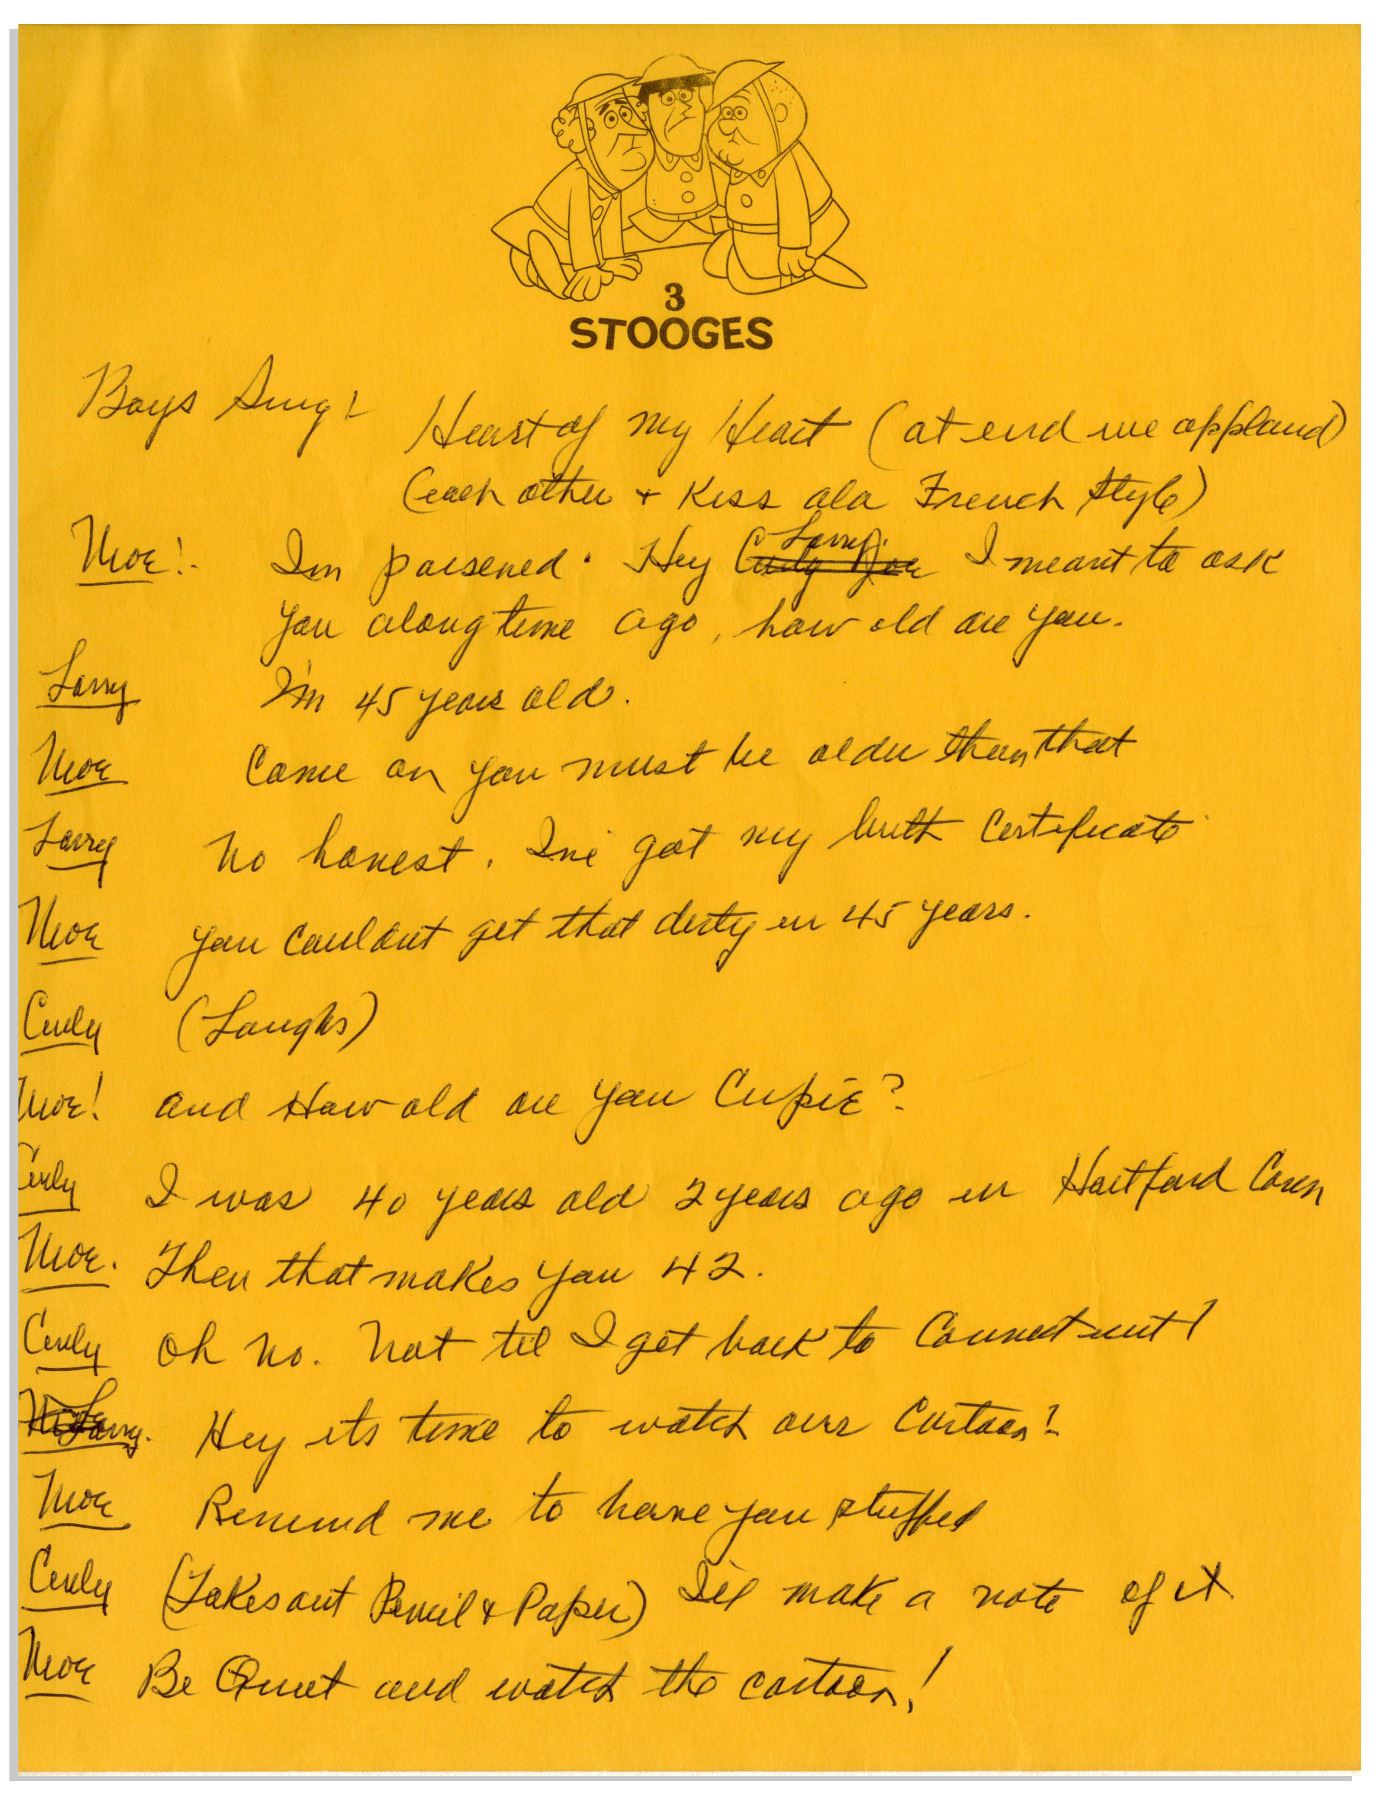 3
STOOGES
Boys Sing! Heart of my Heart (at end we applaud)
(each other + Kiss ala French Style)
Moe! Im poisened. Hey Larry Curly Joe I meant to ask
you along time ago, how old are you.
Larry I'm 45 years old.
Moe Come on you must be older than that
Larry No honest. Ive got my birth certificate
Moe you couldnt get that dirty in 45 years.
Curly (Laughs)
Moe! and How old are you Cupie?
Curly I was 40 years old 2 years ago in Hartford Conn
Moe. Then that makes you 42.
Curly Oh no. Not til I get back to Connecticut!
Larry. Hey its time to watch our Cartoon!
Moe Remind me to have you stuffed
Curly (Takes out Pencil & Paper) I'll make a note of it.
Moe Be Quiet and watch the cartoon!